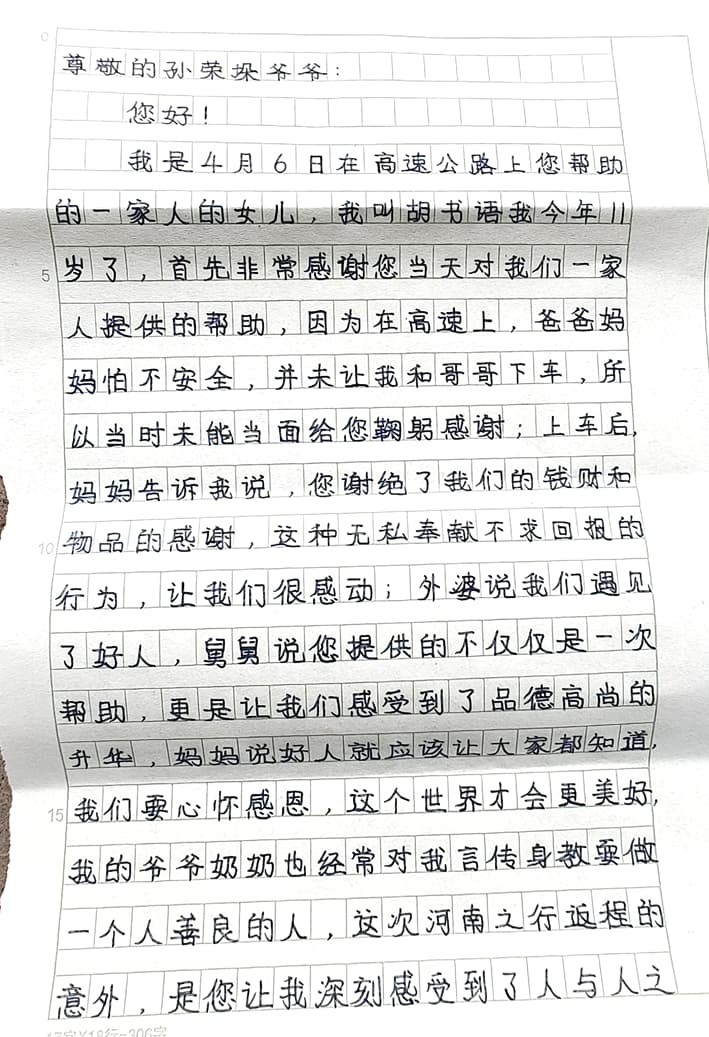 尊敬的孙荣垛爷爷：
您好！
我是4月6日在高速公路上您帮助
的一家人的女儿，我叫胡书语我今年11
岁了，首先非常感谢您当天对我们一家
5
人提供的帮助，因为在高速上，爸爸妈
妈怕不安全，并未让我和哥哥下车，所
以当时未能当面给您鞠躬感谢；上车后，
妈妈告诉我说，您谢绝了我们的钱财和
物品的感谢，这种无私奉献不求回报的
10
行为，让我们很感动；外婆说我们遇见
了好人，舅舅说您提供的不仅仅是一次
帮助，更是让我们感受到了品德高尚的
升华，妈妈说好人就应该让大家都知道，
我们要心怀感恩，这个世界才会更美好，
15
我的爷爷奶奶也经常对我言传身教要做
一个人善良的人，这次河南之行返程的
意外，是您让我深刻感受到了人与人之
17字X18行=306字